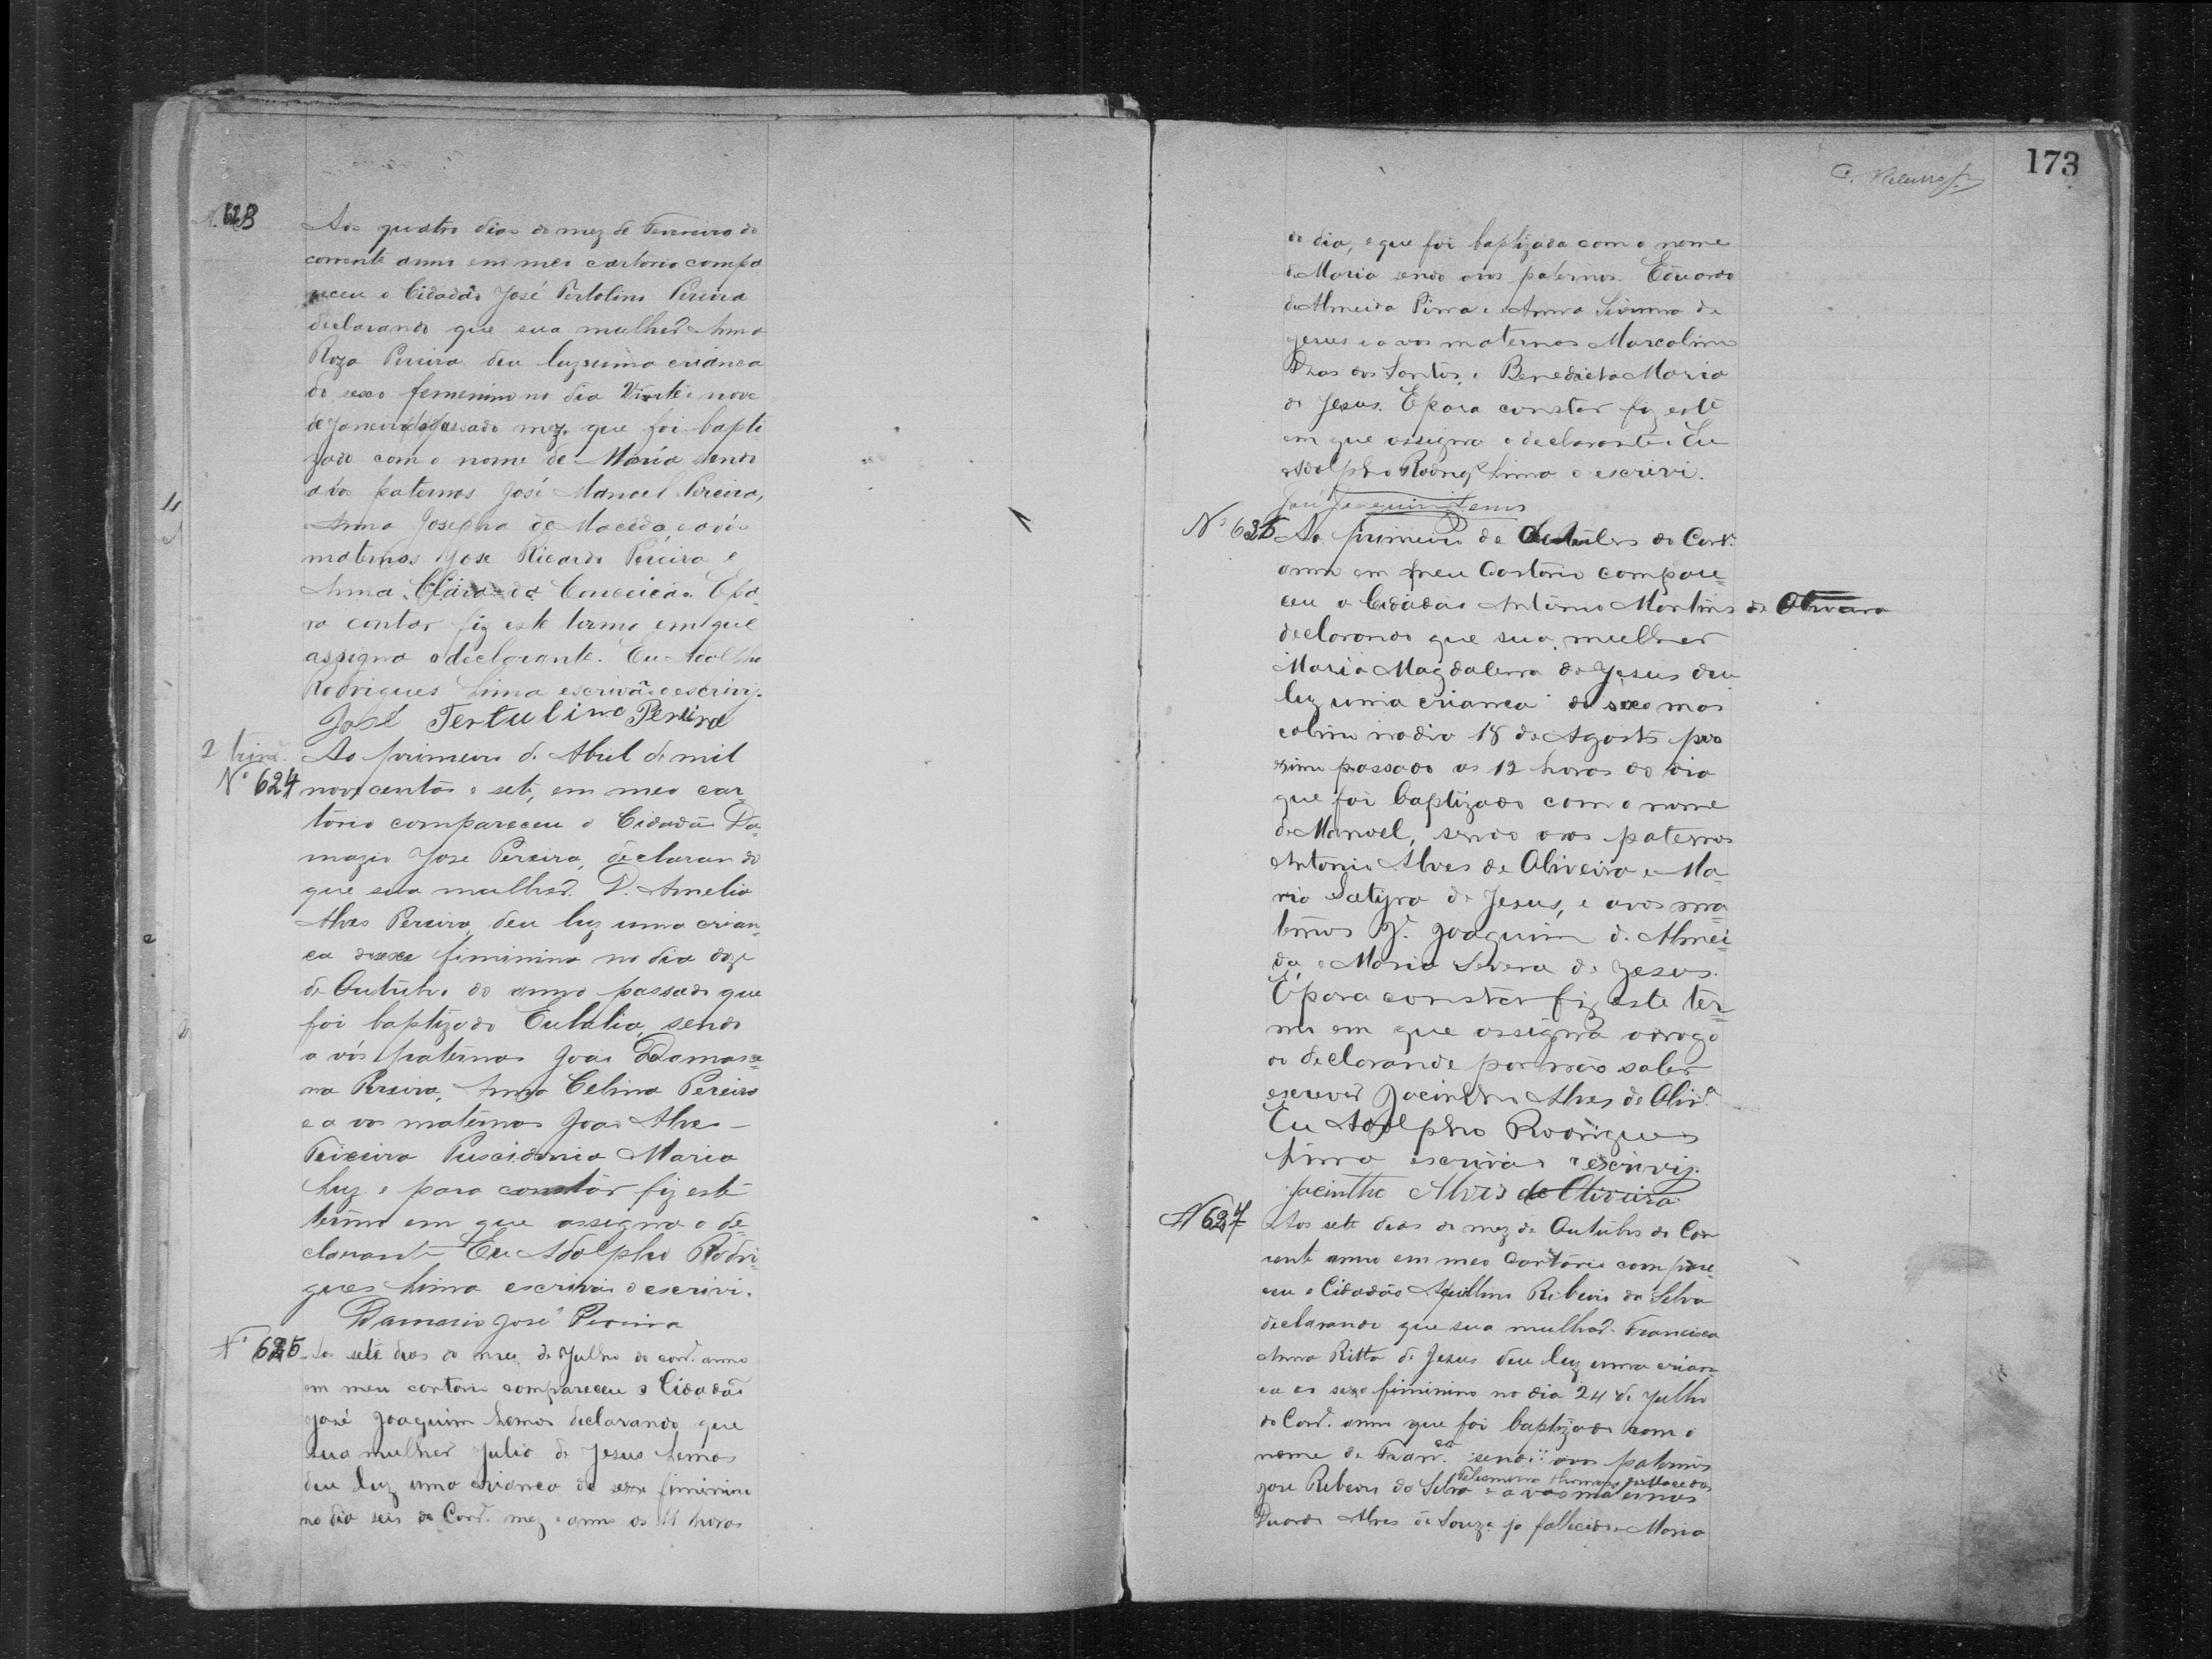 N. 623
Aos quatro dias do mez de Fevereiro do
corrente anno em meo cartorio compa
receu o Cidadão José Pertolino Pereira
declarando que sua mulher Anna
Roza Pereira deu luz uma criança
do sexo femenino no dia Vinte e nove
de Janeiro do passado mez. que foi bapti
zado com o nome de Maria sendo
avós paternos José Manoel Pereira,
Anna Josepha de Macedo, e avós
maternos José Ricardo Pereira e
Anna Clara da Conceição. E pa
ra contar fiz este termo em que
assigna o declarante. Eu Adolpho
Rodrigues Lima escrivão o escrivi.
José Tertulino Pereira
2 trim.
Ao primeiro de Abril de mil
Nº 624 novecentos e sete, em meo car
torio compareceu o Cidadão Da
mazio Jose Pereira, declaran do
que sua mulher D. Amelia
Alves Pereira, deu luz uma crian
ca de sexo fiminino no dia doze
de Outubro do anno passado que
foi baptizado Eulalia, sendo
a vós paternos João Damasce
na Pereira, Anna Celina Pereira
e a vos maternos João Alves
Teixeira Maria
Luz e para constar fiz este
termo em que assigna o de
clarante Eu Adolpho Rodri
gues Lima escrivão o escrivi.
Damasio José Pereira
Nº 625 Ao sete dias do mez de Julho do corr. anno
em meu cartorio compareceu o Cidadão
José Joaquim Lemos declarando que
sua mulher Julia de Jesus Lemos
deu luz uma criança do sexo fiminino
no dia seis do Corr. mez e anno as 11 horas
173
do dia, e que foi baptizada com o nome
de Maria sendo avos paternos. Eduardo
de Almeida e Anna de
Jesus e a vos maternos Marcolino
Dias dos Santos, e Benedicta Maria
de Jesus. E para constar fiz este
em que assigna o declarante. Eu
Adolpho Rodrig. Lima o escrivi.
José Joaquim Lemos
Nº 626 Ao primeiro de Outubro do Corr.
anno em meu Cartorio compare
ceu o Cidadão Antonio Martins de Oliveira
declarando que sua mulher
Maria Magdalena de Jesus deu
luz uma criança do sexo mas
colino no dia 18 de Agosto pro
ximo passado as 12 horas do dia
que foi baptizado com o nome
de Manoel, sendo avos paternos
Antonio Alves de Oliveira e Ma
ria Satyra de Jesus, e avos ma
ternos J. Joaquim d. Almei
da, e Maria Severa de Jesus.
E para constar fiz este ter
mo em que assigna a rogo
do declarande por não saber
escrever Jacintho Alves de Oliv.ª
Eu Adolpho Rodrigues
Lima escrivão o escrivi.
Jacintho Alves de Oliveira
N 627 Aos sete dias do mez de Outubro do Cor
rente anno em meo Cartorio compare
ceu o Cidadão Aquillino Ribeiro da Silva
declarando que sua mulher Francisca
Anna Ritta de Jesus deu luz uma crian
ca do sexo fiminino no dia 24 de Julho
do Corr. anno que foi baptizado com o
nome de Fran.ca sendo avos paternos
Jose Ribeiro da Silva e a vos maternos
Duarde Alves de Souza ja fallecido e Maria